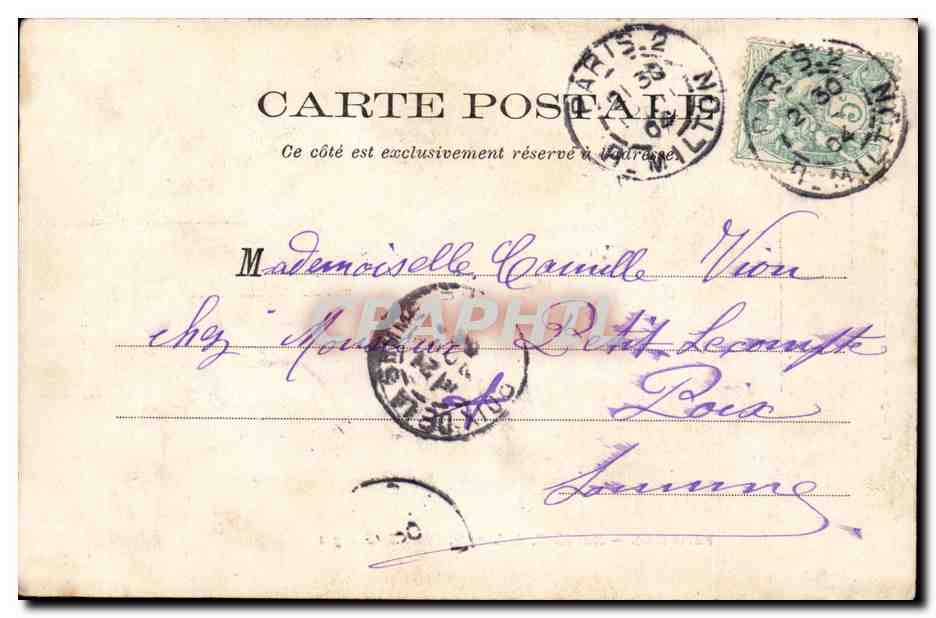 CARTE POSTALE
Ce côté est exclusivement réservé à l'adresse.
PARIS-2
R. MILTON
21 30
04
PARIS-2
R. MILTON
21 30
04
5
Mademoiselle Camille Vion
chez Monsieur Petit Lecompte
à Poix
Somme
DE LA SOMME
CPAPHIL